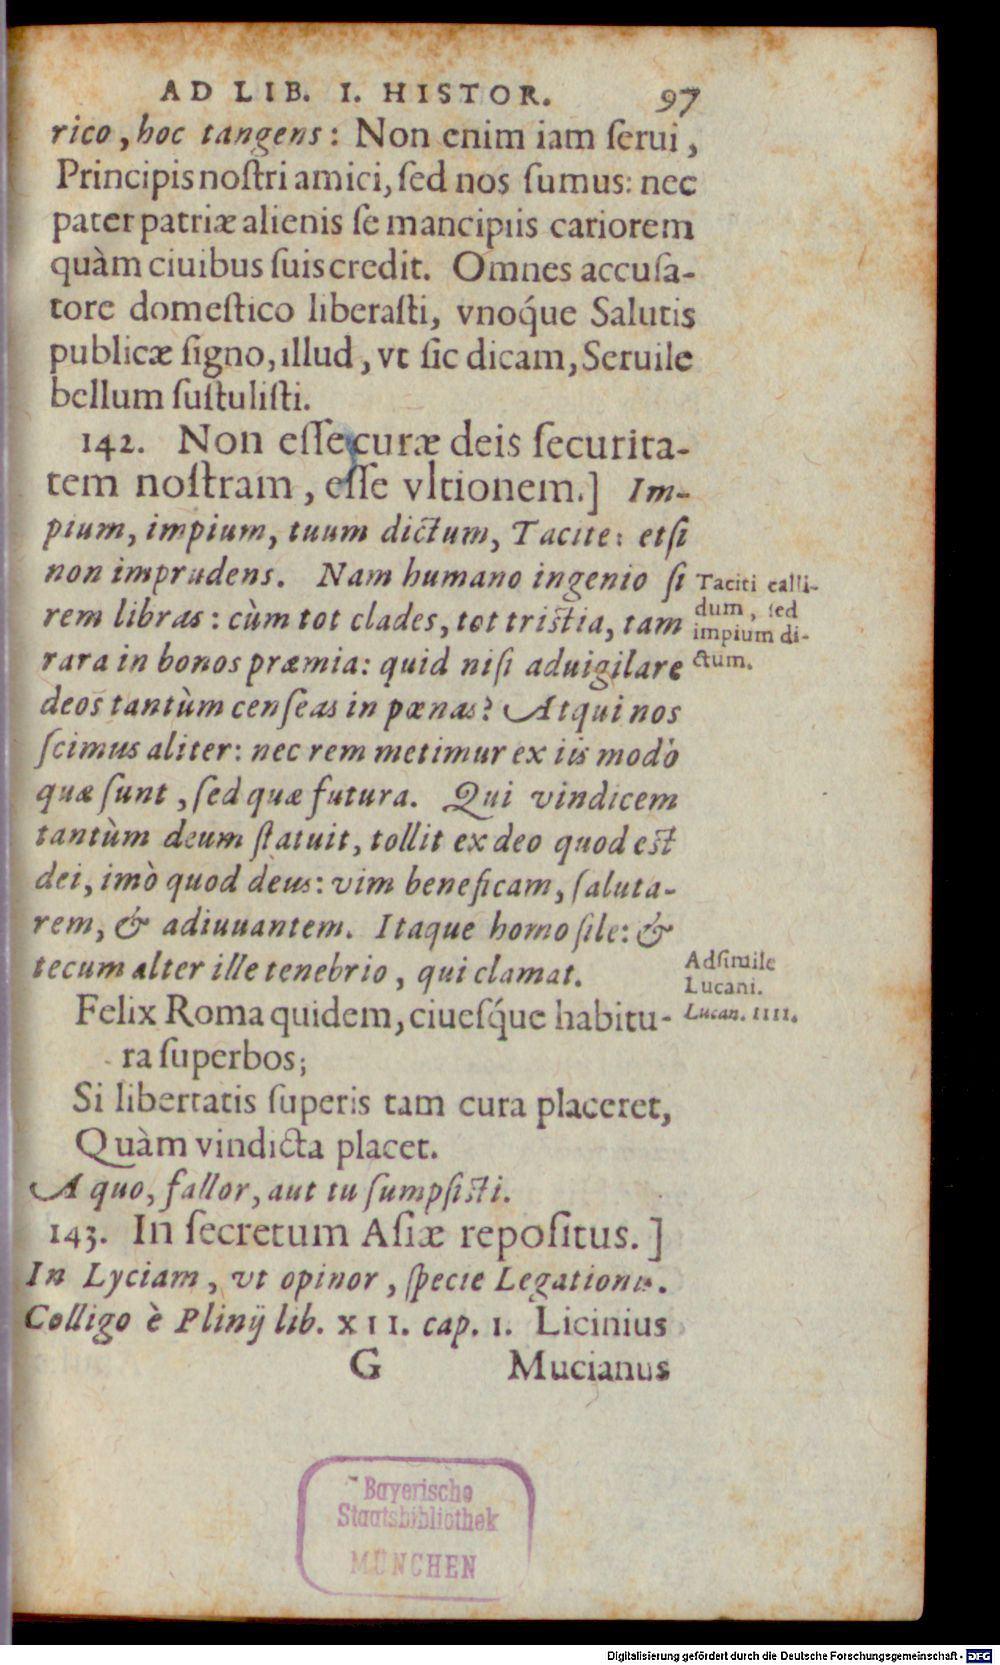 AD LIB. I. HISTOR. 97
rico, hoc tangens: Non enim iam ſerui,
Principis noſtri amici, ſed nos ſumus: nec
pater patriæ alienis ſe mancipiis cariorem
quàm ciuibus ſuis credit. Omnes accuſa-
tore domeſtico liberaſti, vnoq́ue Salutis
publicæ ſigno, illud, vt ſic dicam, Seruile
bellum ſuſtuliſti.
142. Non eſſe curæ deis ſecurita-
tem noſtram, eſſe vltionem.] Im-
pium, impium, tuum dictum, Tacite: etſi
non imprudens. Nam humano ingenio ſi
rem libras: cùm tot clades, tot triſtia, tam
rara in bonos præmia: quid niſi aduigilare
deos tantùm cenſeas in pœnas? Atqui nos
ſcimus aliter: nec rem metimur ex iis modò
quæ ſunt, ſed quæ futura. Qui vindicem
tantùm deum ſtatuit, tollit ex deo quod eſt
dei, imò quod deus: vim beneficam, ſaluta-
rem, & adiuuantem. Itaque homo ſile: &
tecum alter ille tenebrio, qui clamat.
Felix Roma quidem, ciueſq́ue habitu-
ra ſuperbos;
Si libertatis ſuperis tam cura placeret,
Quàm vindicta placet.
A quo, fallor, aut tu ſumpſiſti.
143. In ſecretum Aſiæ repoſitus.]
In Lyciam, vt opinor, ſpecie Legationis.
Colligo è Plinij lib. XII. cap. I. Licinius
G Mucianus
Taciti calli-
dum, ſed
impium di-
ctum.
Adſimile
Lucani.
Lucan. IIII.
Bayerische
Staatsbibliothek
MÜNCHEN
Digitalisierung gefördert durch die Deutsche Forschungsgemeinschaft - DFG